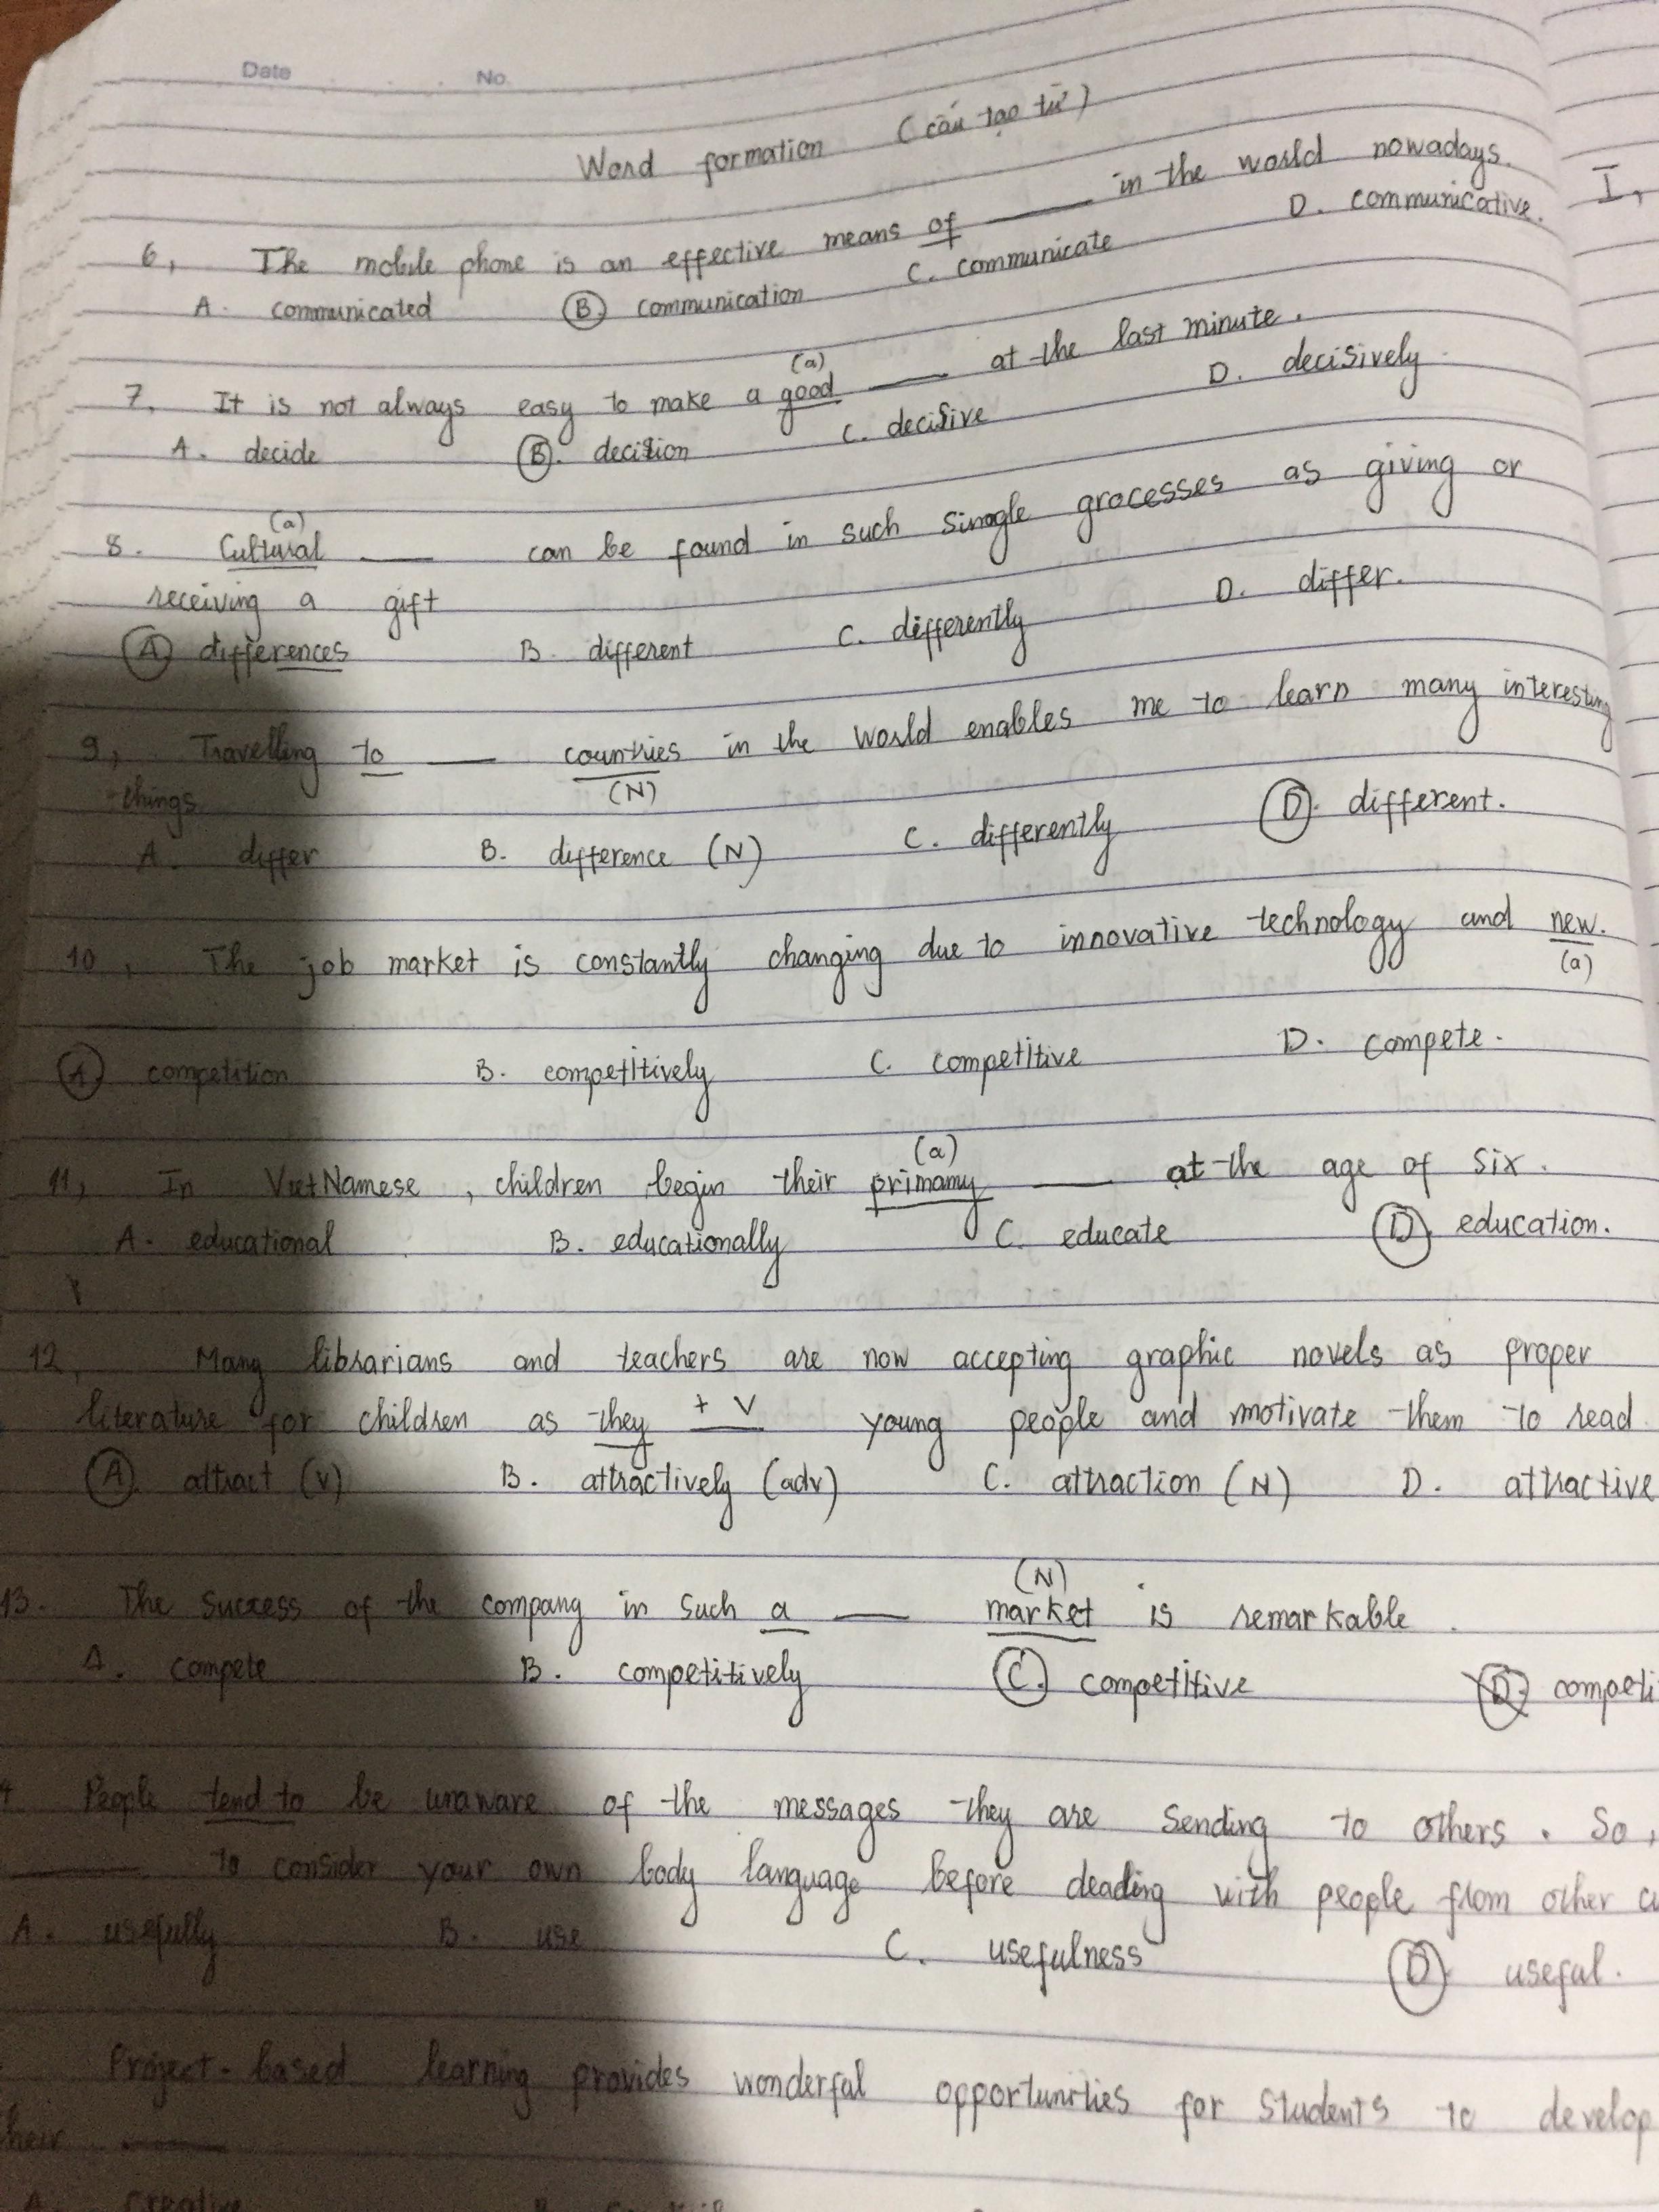 Date No.
Word formation (cấu tạo từ)
6, The mobile phone is an effective means of ____ in the world nowadays. I,
A. communicated B. communication C. communicate D. communicative.
(a)
7, It is not always easy to make a good ____ at the last minute.
A. decide B. decision C. decisive D. decisively.
(a)
8. Cultural ____ can be found in such single grocesses as giving or
receiving a gift
A. differences B. different C. differently D. differ.
9, Travelling to ____ countries in the world enables me to learn many interesting
(N)
things
A. differ B. difference (N) C. differently D. different.
10, The job market is constantly changing due to innovative technology and new.
(a)
A. competition B. competitively C. competitive D. compete.
(a)
11, In VietNamese, children begin their primamy ____ at the age of six.
A. educational B. educationally C. educate D. education.
12, Many librarians and teachers are now accepting graphic novels as proper
literature for children as they + V young people and motivate them to read
A. attract (v) B. attractively (adv) C. attraction (N) D. attractive
(N)
13. The success of the company in such a ____ market is remarkable.
A. compete B. competitively C. competitive D. competi
4 People tend to be unaware of the messages they are sending to others. So,
____ to consider your own body language before deading with people from other cu
A. usefully B. use C. usefulness D. useful.
Project-based learning provides wonderful opportunities for students to develop
heir ____
A. creative